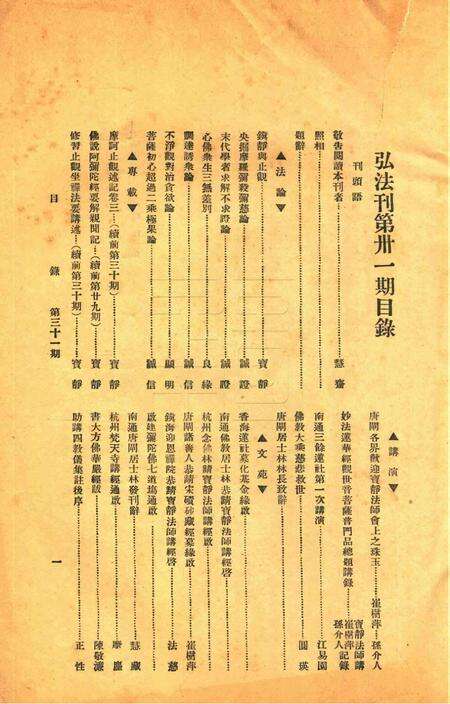 弘法刊第卅一期目錄
刊頭語
敬告閱讀本刊者………慧齋
照相
題辭
▲法論▼
鎮靜與止觀………寶靜
央掘摩羅彌殺彌慈論………誠證
末代學者求解不求證論………誠證
心佛衆生三無差別………良緣
調達誘衆論………誠信
不淨觀對治貪欲論………顯明
菩薩初心超過二乘極果論………誠信
▲專載▼
摩訶止觀述記卷三…(續前第三十期)………寶靜
佛說阿彌陀經要解親聞記…(續前第廿九期)………寶靜
修習止觀坐禪法要講述…(續前第三十期)………寶靜
▲講演▼
唐閘各界歡迎寶靜法師會上之珠玉………崔樹萍 孫介人
妙法蓮華經觀世音菩薩普門品總題講錄………寶靜法師講 崔樹萍 孫介人記錄
南通三餘蓮社第一次講演………江易園
佛教大乘慈悲救世………圓瑛
唐閘居士林林長致辭
▲文苑▼
香海蓮社募化基金緣啟
南通佛教居士林恭請寶靜法師講經啓
杭州念佛林請寶靜法師講經啟
唐閘諸善人恭請宋磧砂藏經募緣啟………崔樹萍
鎮海迎恩禪院恭請寶靜法師講經啓………法慈
啟建彌陀佛七道塲通啟
南通唐閘居士林發刊辭………慧嚴
杭州梵天寺講經通啟………磨塵
書大方佛華嚴經跋………陳敬濂
助講四教儀集註後序………正性
目錄 第三十一期 一